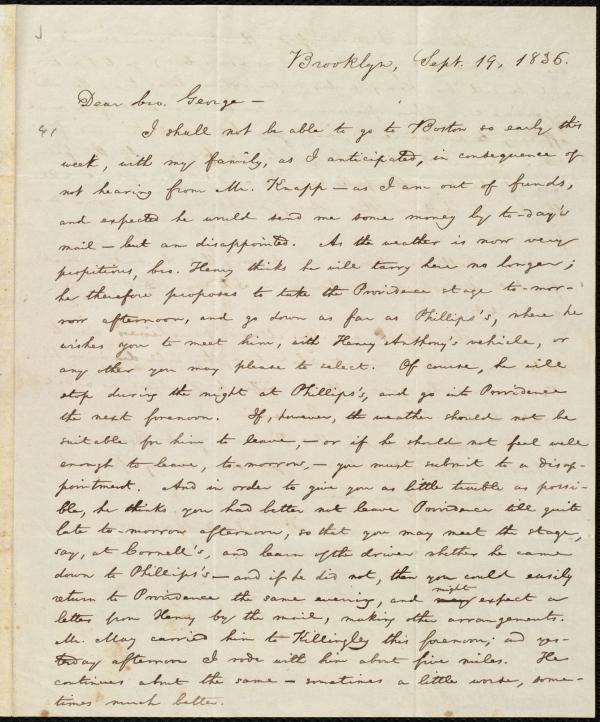 Brooklyn, Sept. 19, 1836.
Dear bro. George—
I shall not be able to go to Boston so early this
week, with my family, as I anticipated, in consequence of
not hearing from Mr. Knapp—as I am out of funds,
and expected he would send me some money by to-day's
mail—but am disappointed. As the weather is now very
propitious, bro. Henry thinks he will tarry here no longer;
he therefore proposes to take the Providence stage to-mor-
row afternoon, and go down as far as Phillips's, where he
wishes you to meet him, with Henry Anthony's vehicle, or
any other you may please to select. Of course, he will
stop during the night at Phillips's, and go into Providence
the next forenoon. If, however, the weather should not be
suitable for him to leave,—or if he should not feel well
enough to leave, to-morrow,—you must submit to a disap-
pointment. And in order to give you as little trouble as possi-
ble, he thinks you had better not leave Providence till quite
late to-morrow afternoon, so that you may meet the stage,
say, at Cornell's, and learn of the driver whether he came
down to Phillips's—and if he did not, then you could easily
return to Providence the same evening, and might expect a
letter from Henry by the mail, making other arrangements.
Mr. May carried him to Killingley this forenoon; and yes-
terday afternoon I rode with him about five miles. He
continues about the same—sometimes a little worse, some-
times much better.